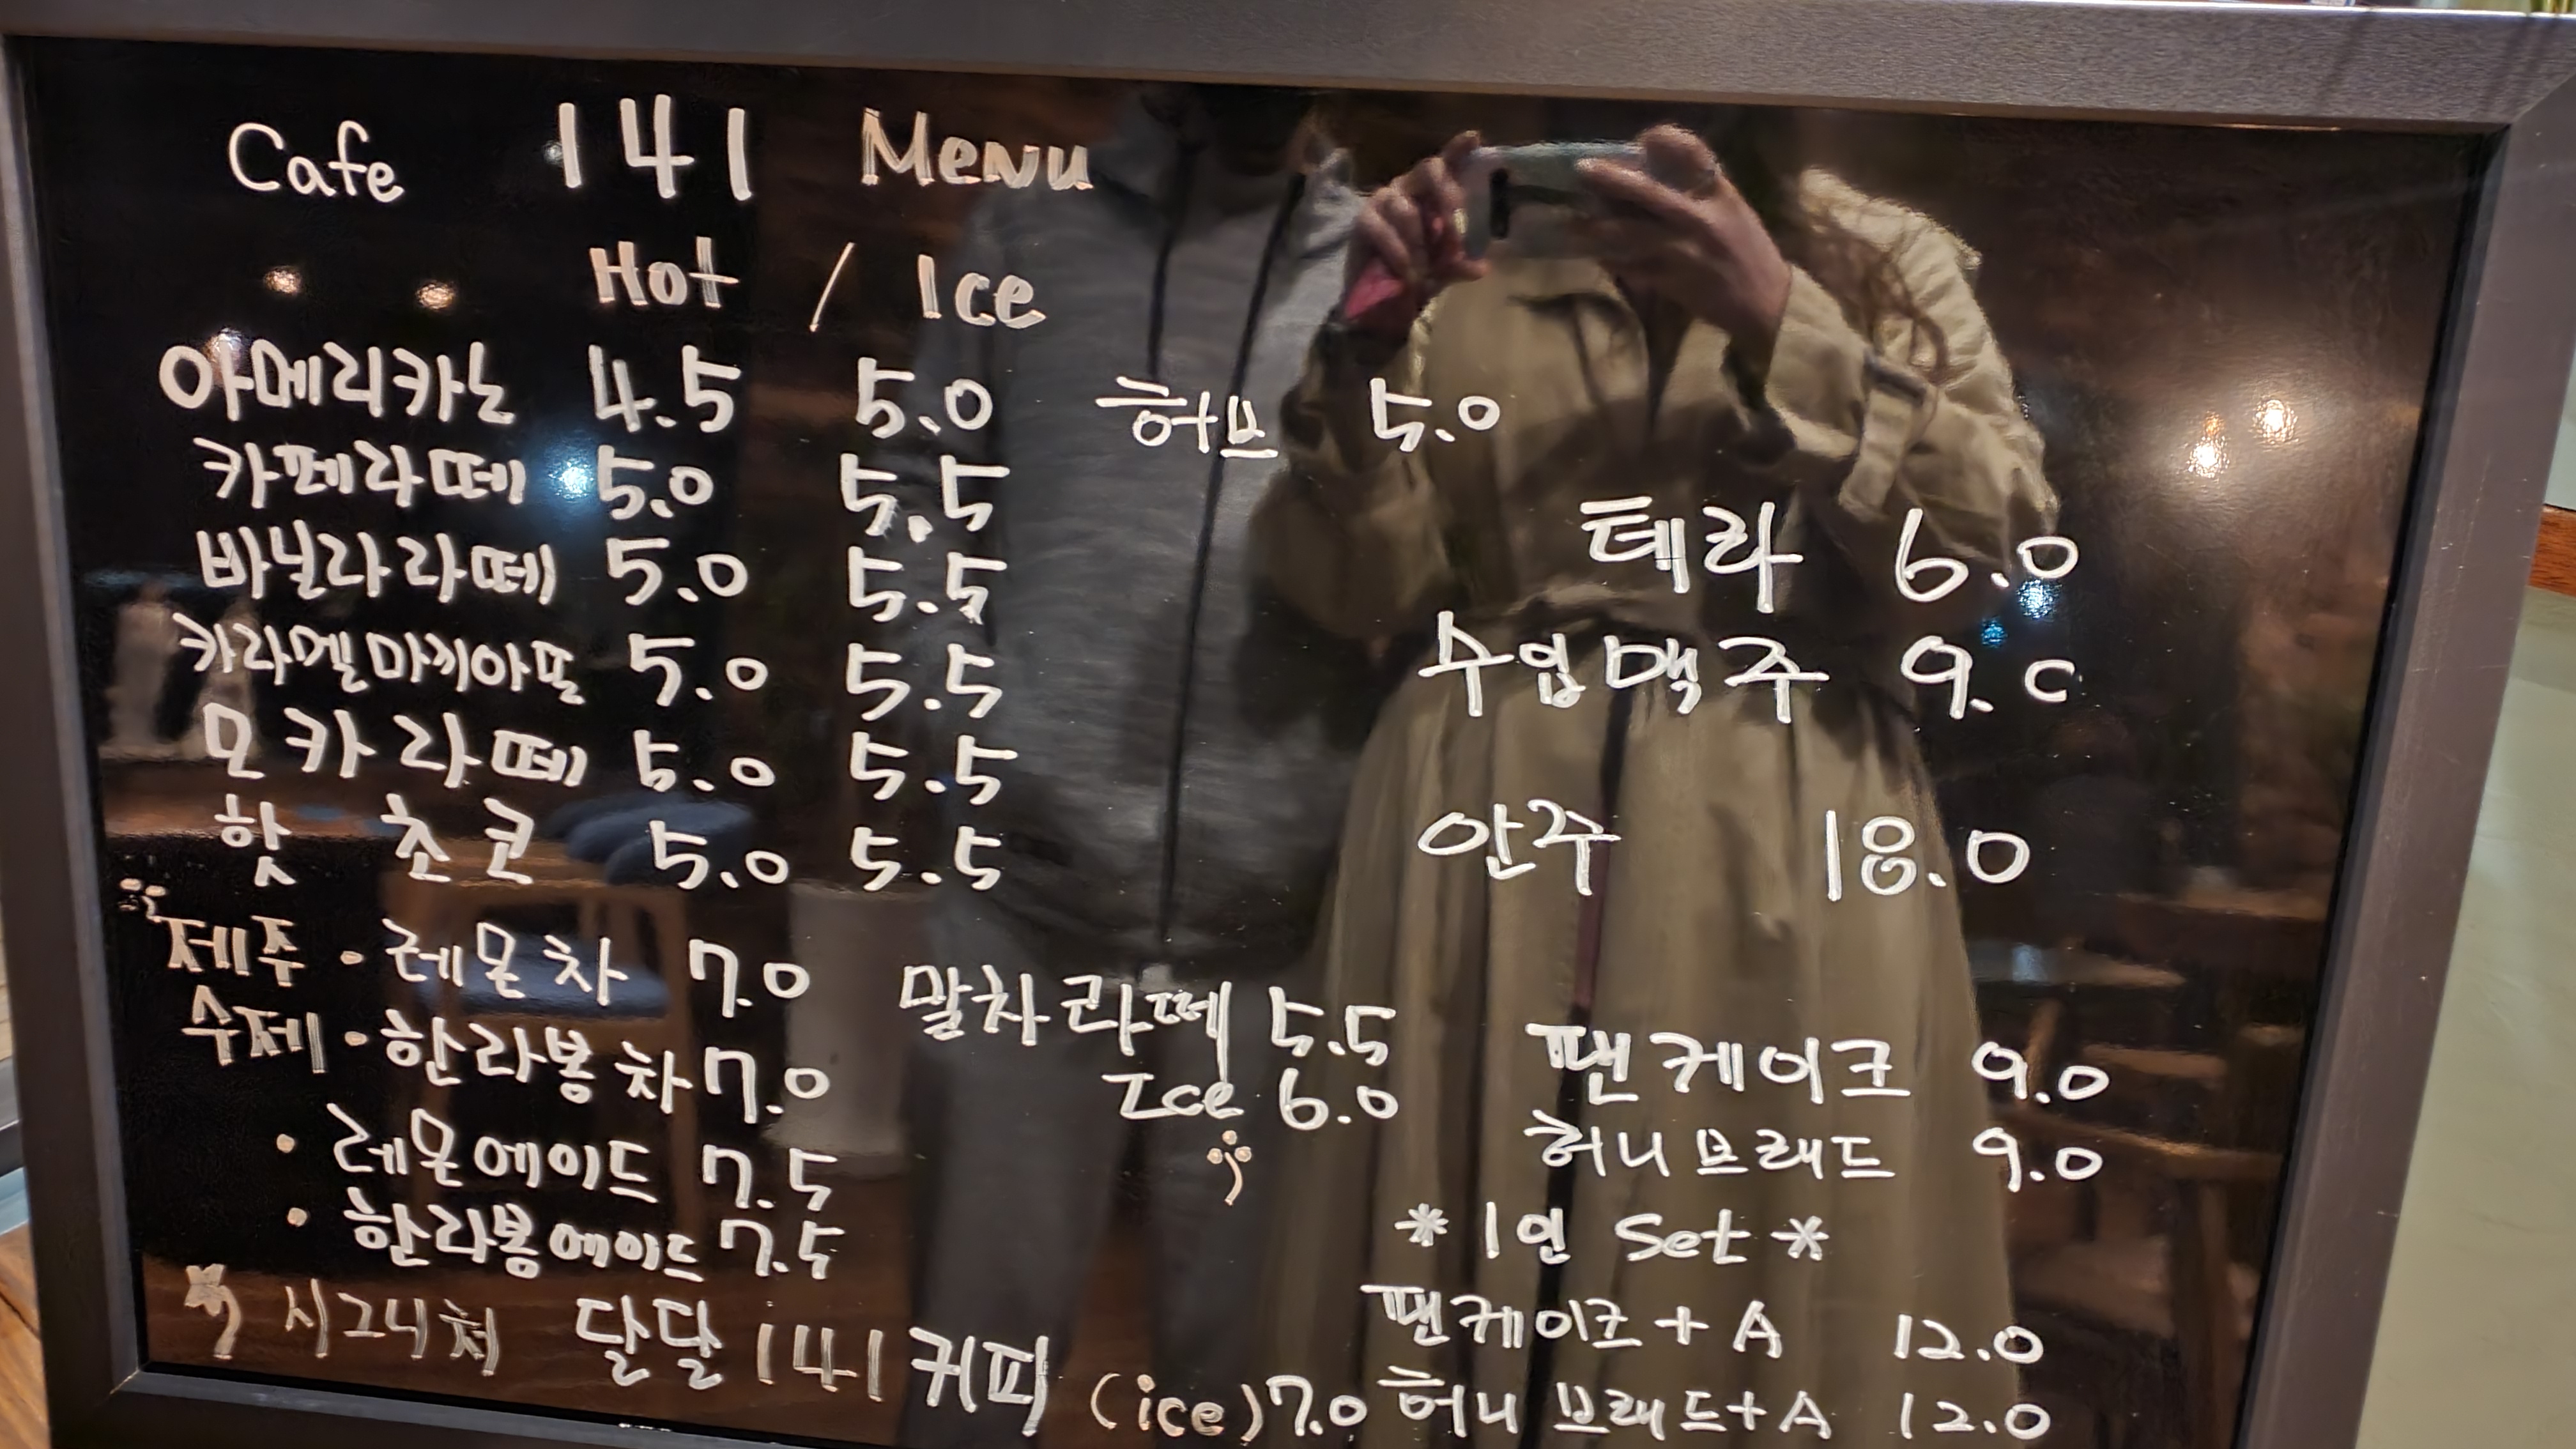 Cafe 141 Menu
Hot / Ice
아메리카노 4.5 5.0
카페라떼 5.0 5.5
바닐라라떼 5.0 5.5
카라멜마끼아또 5.0 5.5
모카라떼 5.0 5.5
핫 초코 5.0 5.5
제주 · 레몬차 7.0
수제 · 한라봉차 7.0
· 레몬에이드 7.5
· 한라봉에이드 7.5
시그니처 달달 141 커피 (ice) 7.0
허브 5.0
말차라떼 5.5
Ice 6.0
테라 6.0
수입맥주 9.0
안주 18.0
팬케이크 9.0
허니브래드 9.0
* 1인 Set *
팬케이크 + A 12.0
허니브래드 + A 12.0